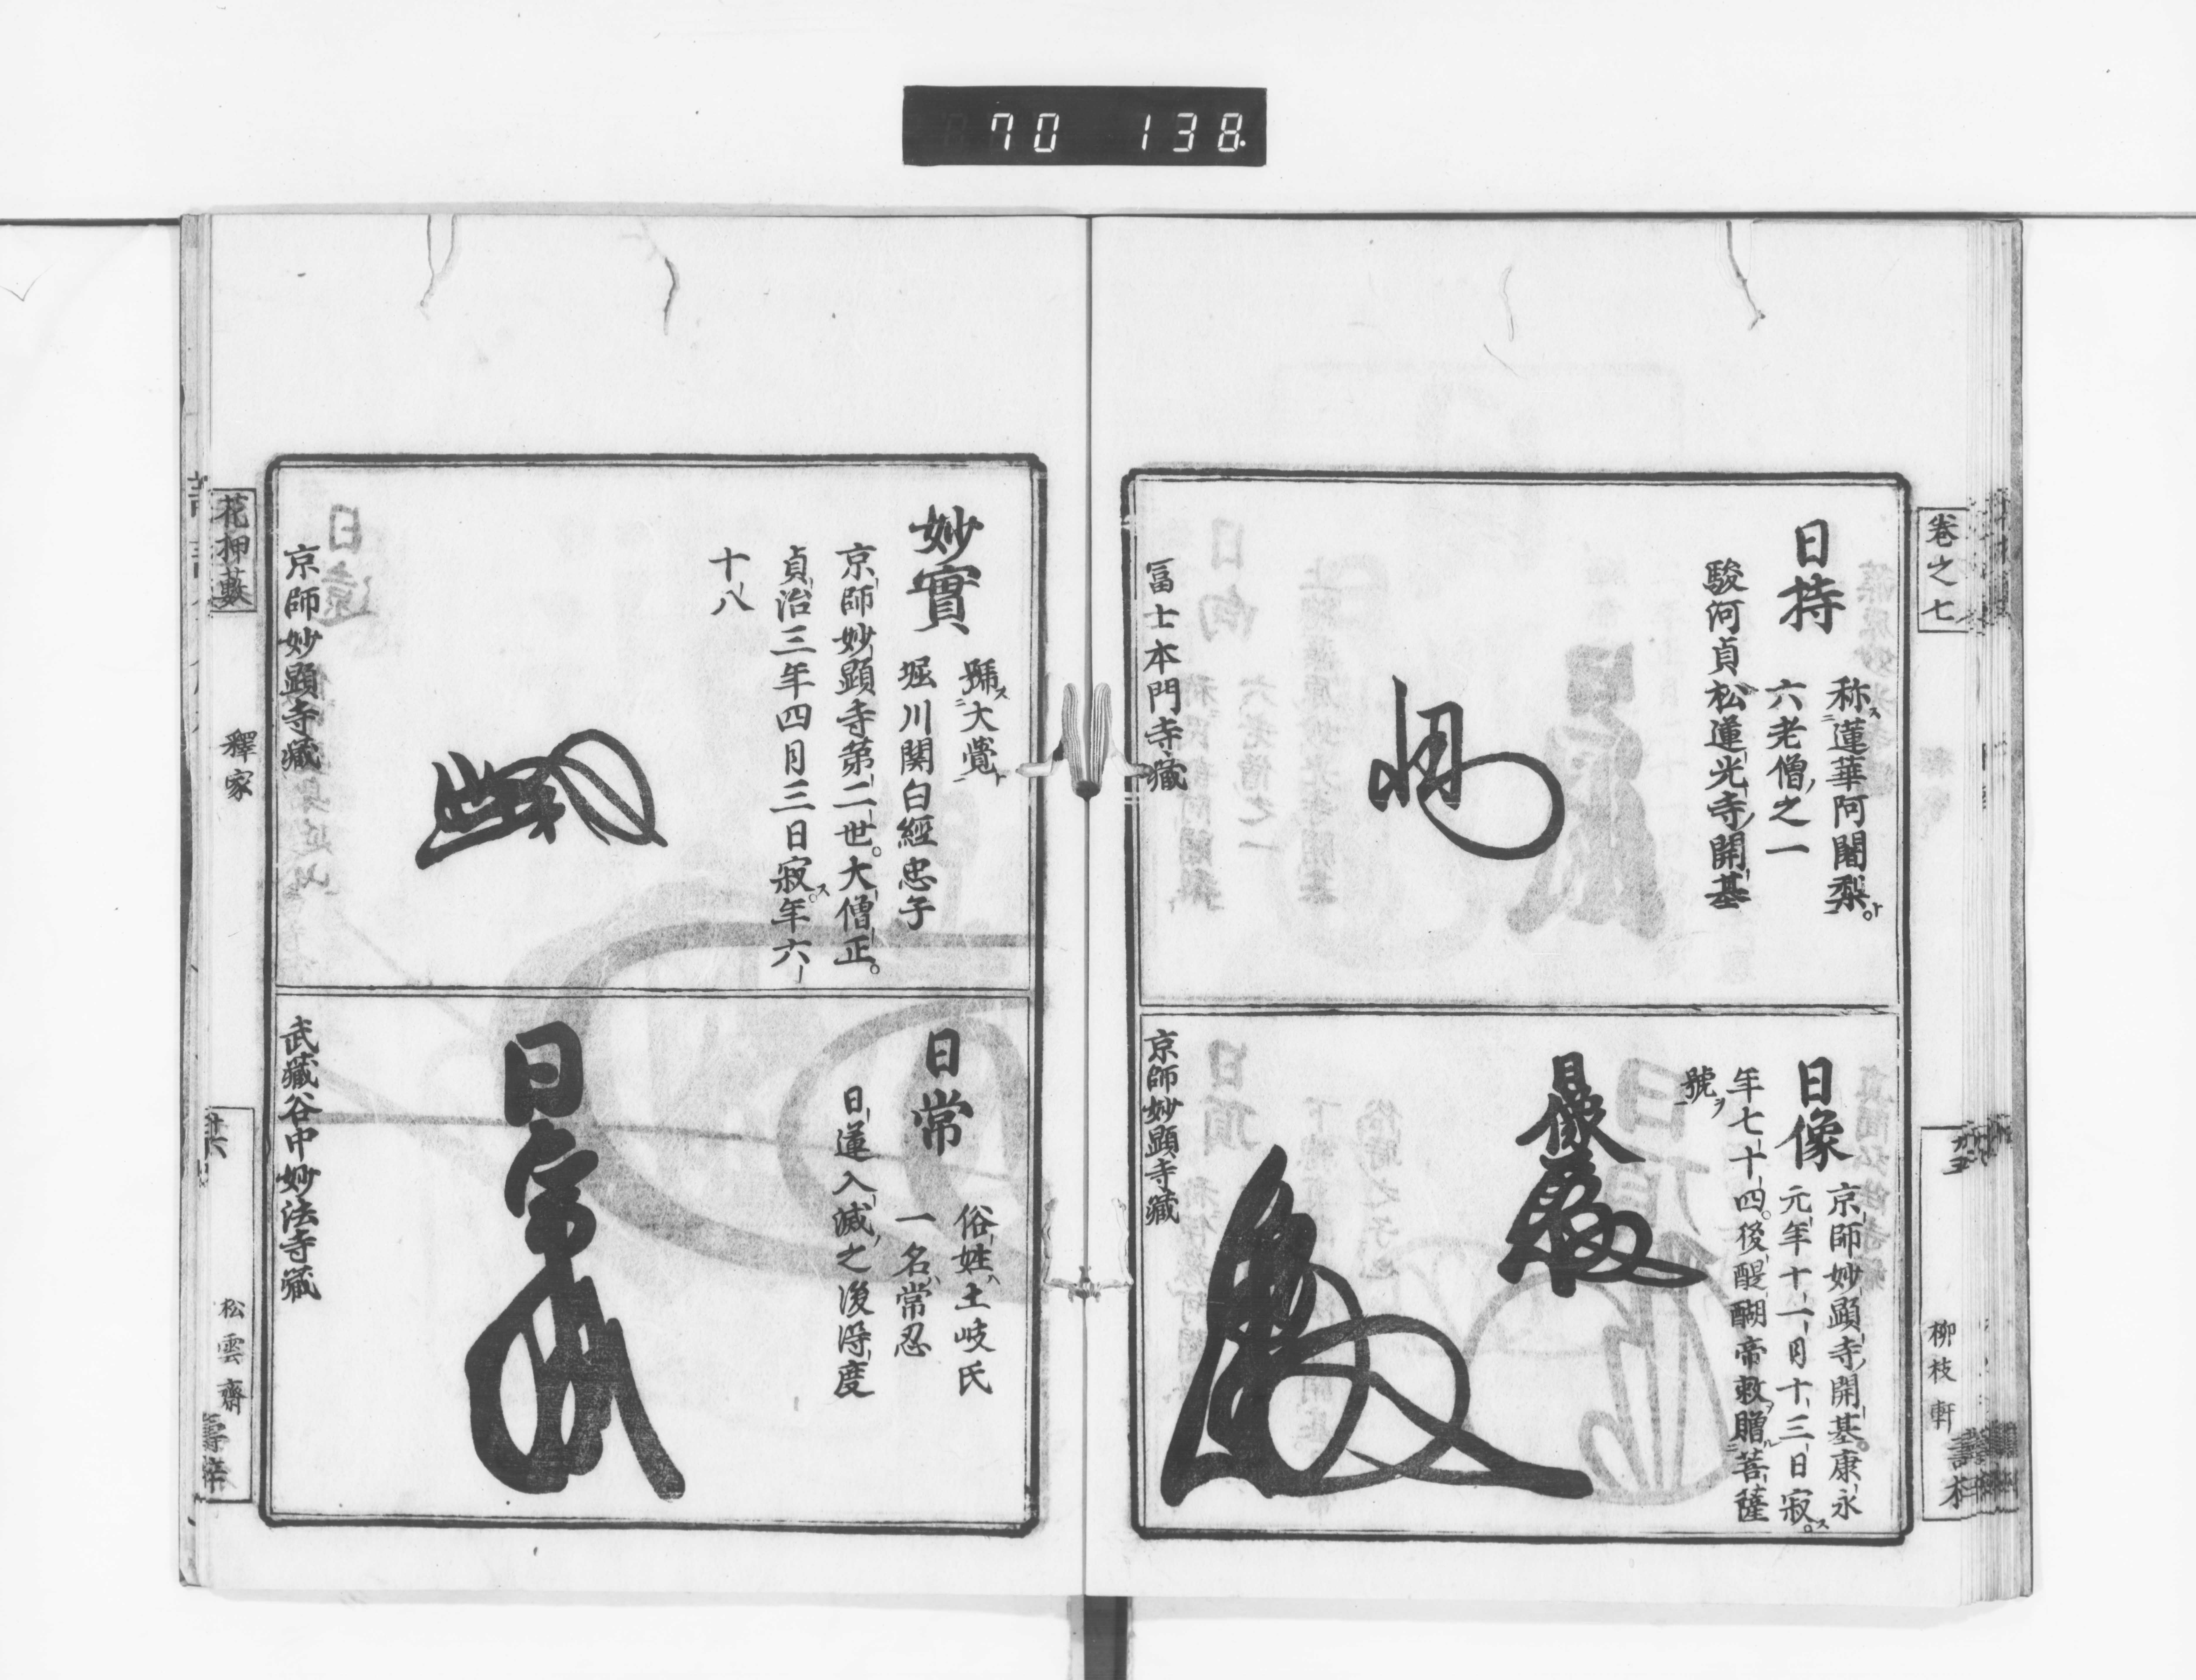 70 138
卷之七
柳枝軒
日持
称ス二蓮華阿闍梨ト一。
六老僧ノ之一
駿河貞松蓮光寺ノ開基
冨士本門寺藏
日像
京師妙顕寺ノ開基。康永
元年十一月十三日寂ス。
年七十四。後醍醐帝敕ヲ贈ル二菩薩
號ヲ一
日像
京師妙顕寺藏
妙實
號ス二大覺ト一
堀川関白經忠子
京師妙顕寺第二世。大僧正。
貞治三年四月三日寂ス。年六
十八
京師妙顕寺藏
日常
俗姓ハ土岐氏
一名ハ常忍
日蓮入滅ノ之後得度
日常
武藏谷中妙法寺藏
花押藪
釋家
松雲齋